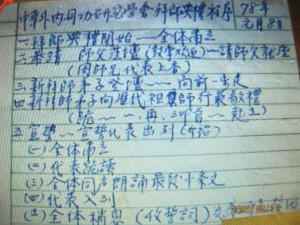 中華內母功研究學會拜師典禮程序 78年
元月8日
一拜師典禮開始——全体肅立
二恭請 師父蒞壇 請師父就座
(團師兄代表上香)
三新拜師弟子全体——向前一步走
四新拜師弟子向歷代祖師行最敬禮
(跪~~再三叩首~起立)
五宣誓~宣誓代表出列
(一)全体肅立
(二)代表跪讀
(三)全体同声朗誦 十条文
(四)代表入列
(五)全体稍息 (收誓詞)